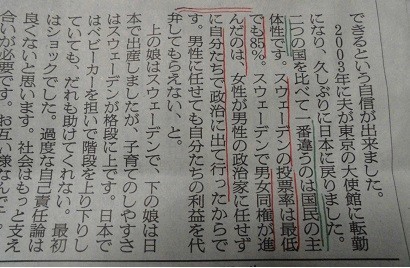 できるという自信が出来ました。
２００３年に夫が東京の大使館に転勤
になり、久しぶりに日本に戻りました。
二つの国を比べて一番違うのは国民の主
体性です。スウェーデンの投票率は最低
でも85％。スウェーデンで男女同権が進
んだのは、女性が男性の政治家に任せず
に自分たちで政治に出て行ったからで
す。男性に任せても自分たちの利益を代
弁してもらえない、と。
上の娘はスウェーデンで、下の娘は日
本で出産しましたが、子育てのしやすさ
はスウェーデンが格段に上です。日本で
はベビーカーを担いで階段を上り下りし
ていても、だれも助けてくれない。最初
はショックでした。過度な自己責任論は
良くないと思います。社会はもっと支え
合いが必要です。お互い様なんです。